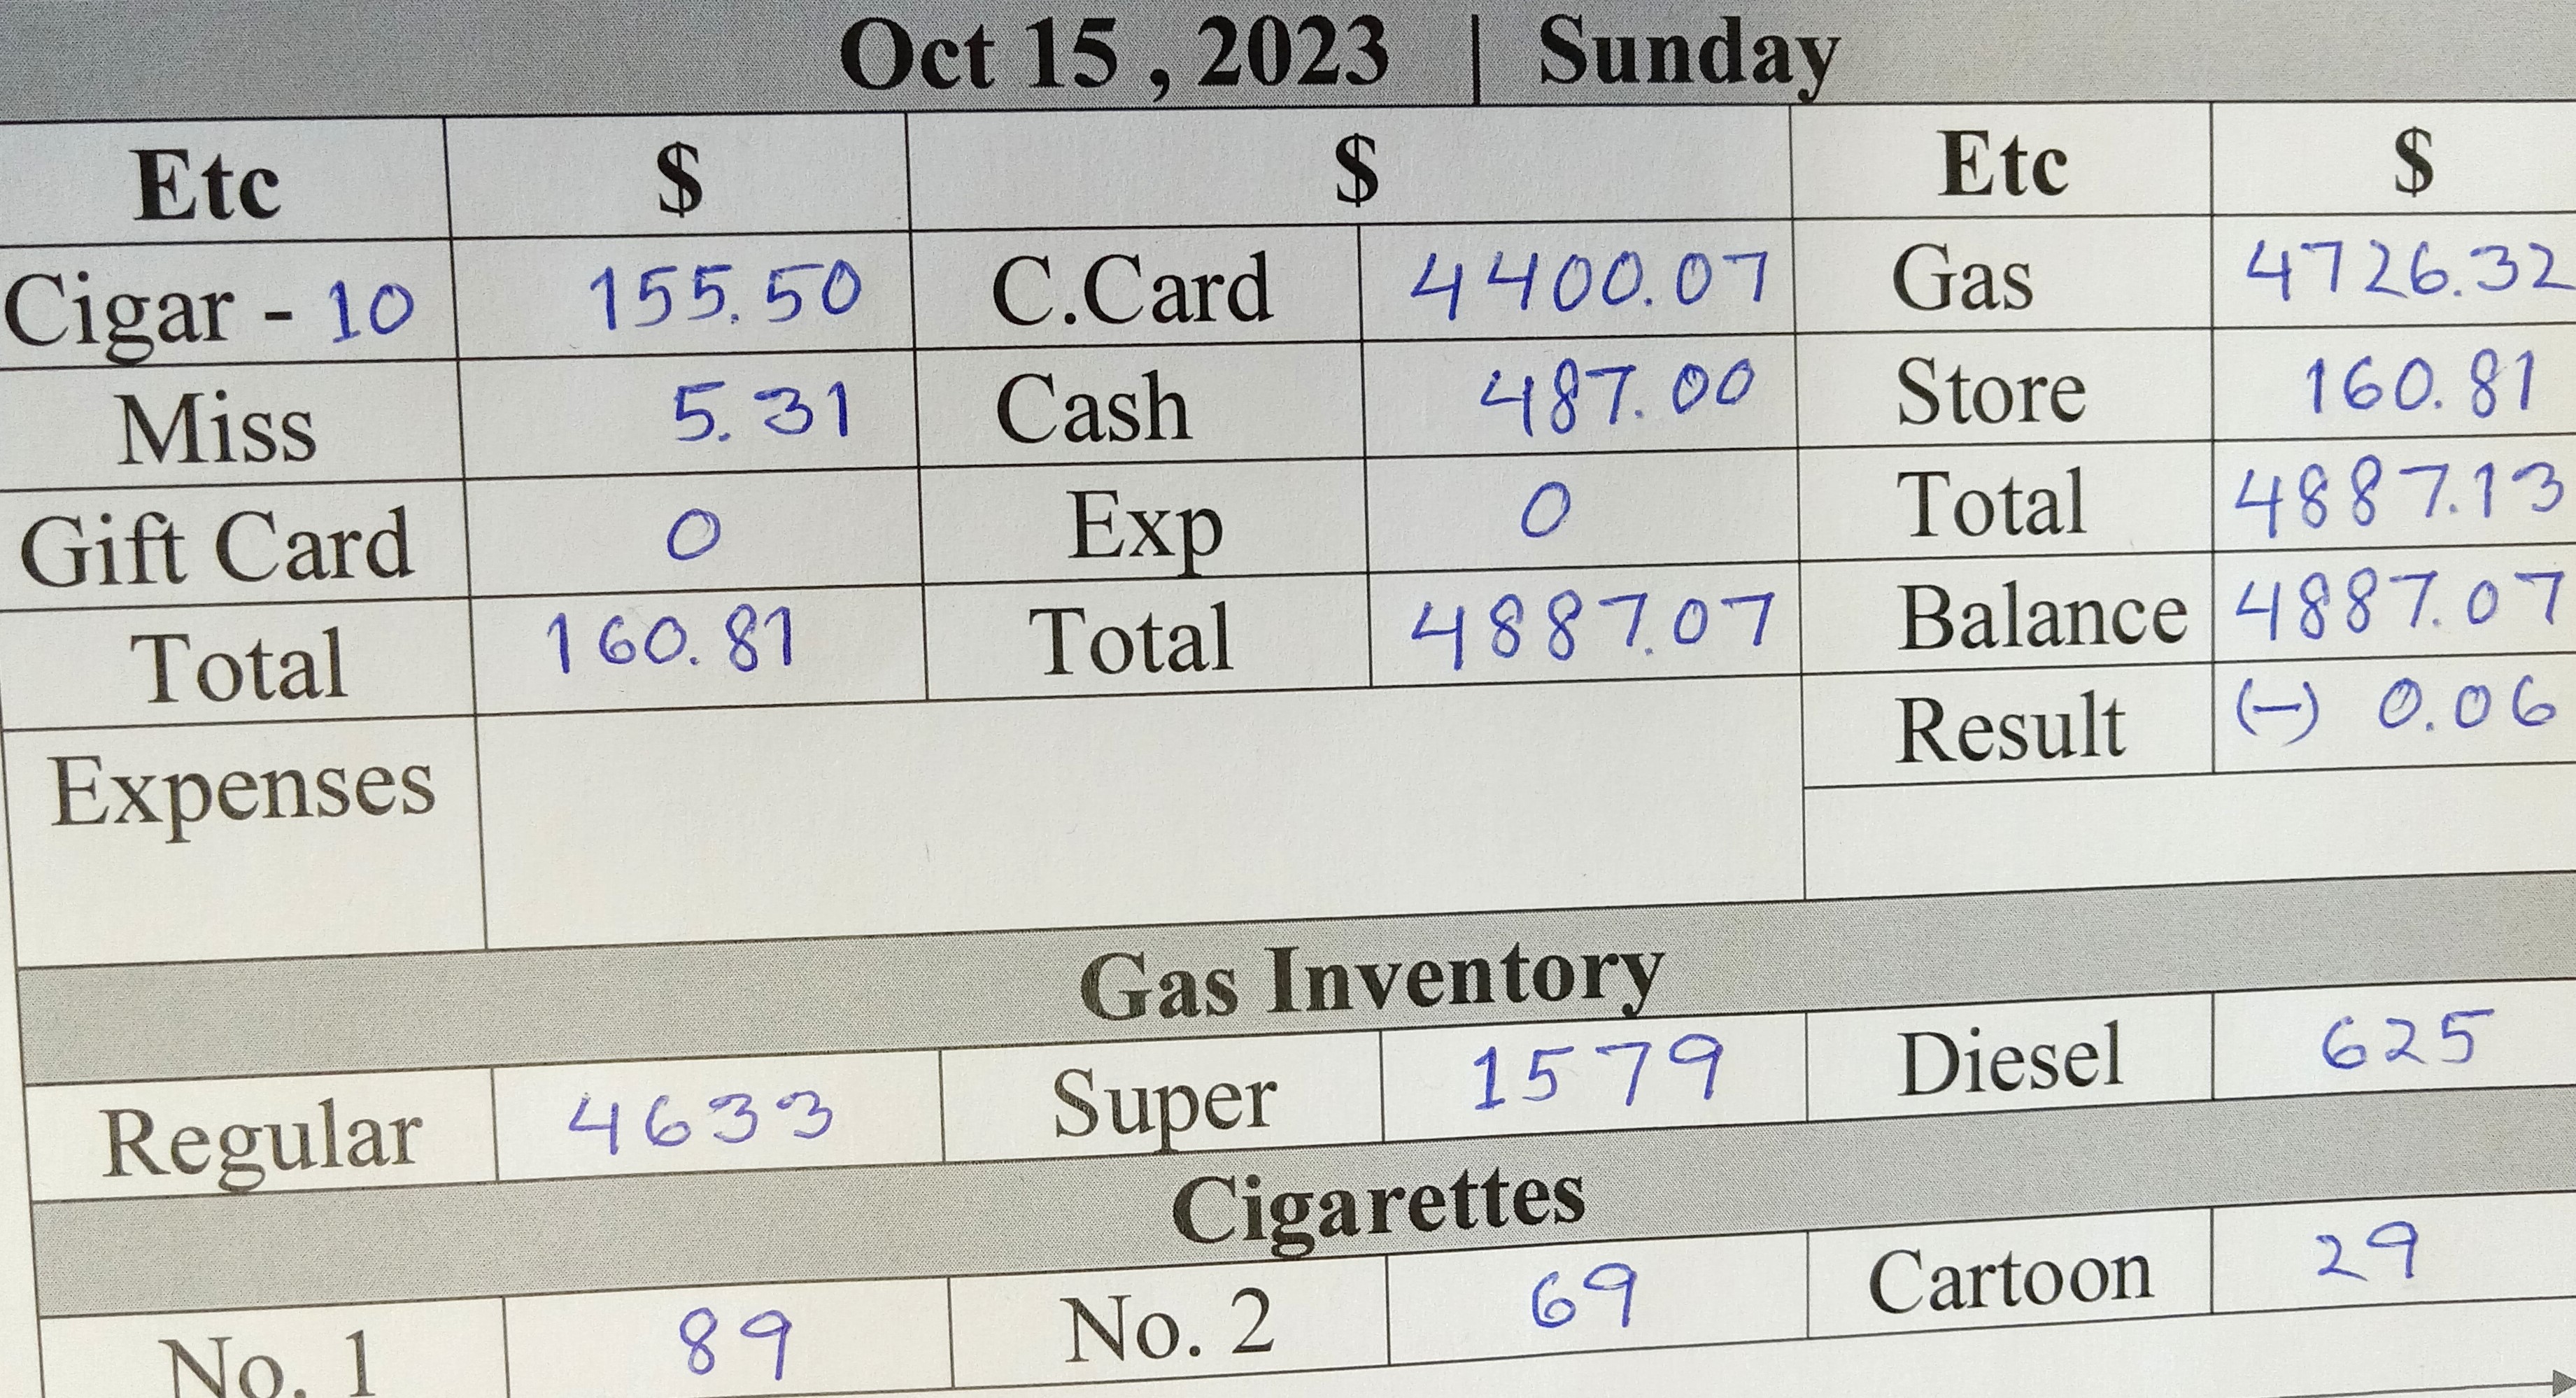 Oct 15 , 2023 | Sunday
Etc $ $ Etc $
Cigar - 10 155.50 C.Card 4400.07 Gas 4726.32
Miss 5.31 Cash 487.00 Store 160.81
Gift Card 0 Exp 0 Total 4887.13
Total 160.81 Total 4887.07 Balance 4887.07
Expenses Result (-) 0.06
Gas Inventory
Regular 4633 Super 1579 Diesel 625
Cigarettes
No. 1 89 No. 2 69 Cartoon 29